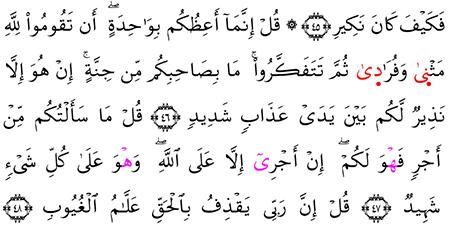 فَكَيْفَ كَانَ نَكِيرِ ﴿٤٥﴾ ۞ قُلْ إِنَّمَآ أَعِظُكُم بِوَٰحِدَةٍ ۖ أَن تَقُومُوا۟ لِلَّهِ
مَثْنَىٰ وَفُرَٰدَىٰ ثُمَّ تَتَفَكَّرُوا۟ ۚ مَا بِصَاحِبِكُم مِّن جِنَّةٍ ۚ إِنْ هُوَ إِلَّا
نَذِيرٌ لَّكُم بَيْنَ يَدَىْ عَذَابٍ شَدِيدٍ ﴿٤٦﴾ قُلْ مَا سَأَلْتُكُم مِّنْ
أَجْرٍ فَهْوَ لَكُمْ ۖ إِنْ أَجْرِىَ إِلَّا عَلَى ٱللَّهِ ۖ وَهْوَ عَلَىٰ كُلِّ شَىْءٍ
شَهِيدٌ ﴿٤٧﴾ قُلْ إِنَّ رَبِّى يَقْذِفُ بِٱلْحَقِّ عَلَّٰمُ ٱلْغُيُوبِ ﴿٤٨﴾